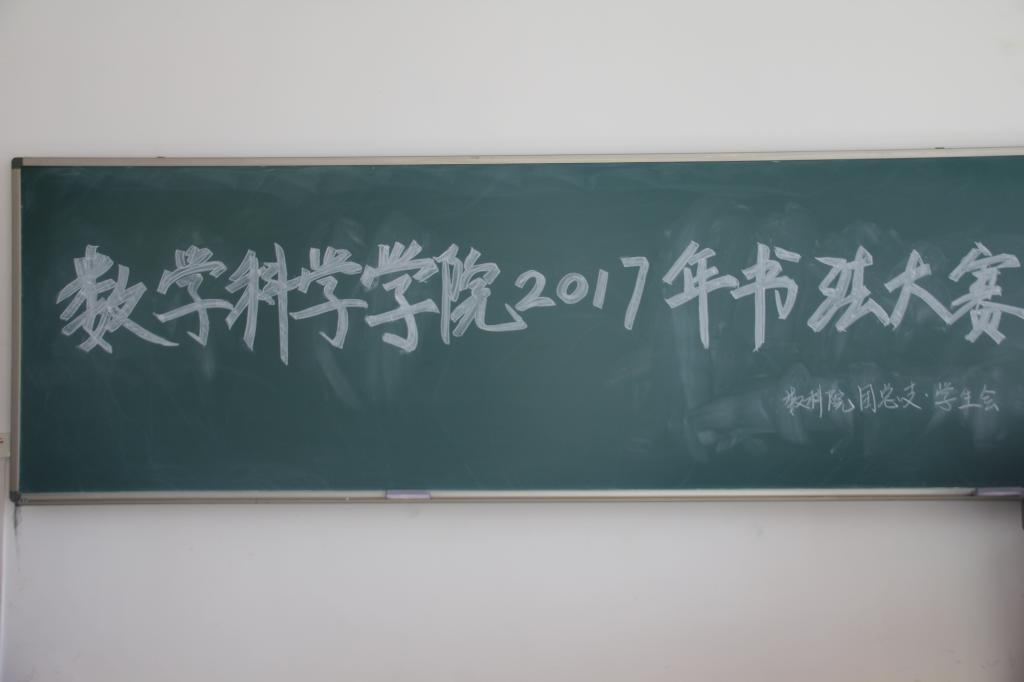 数学科学学院2017年书法大赛
数科院团总支·学生会